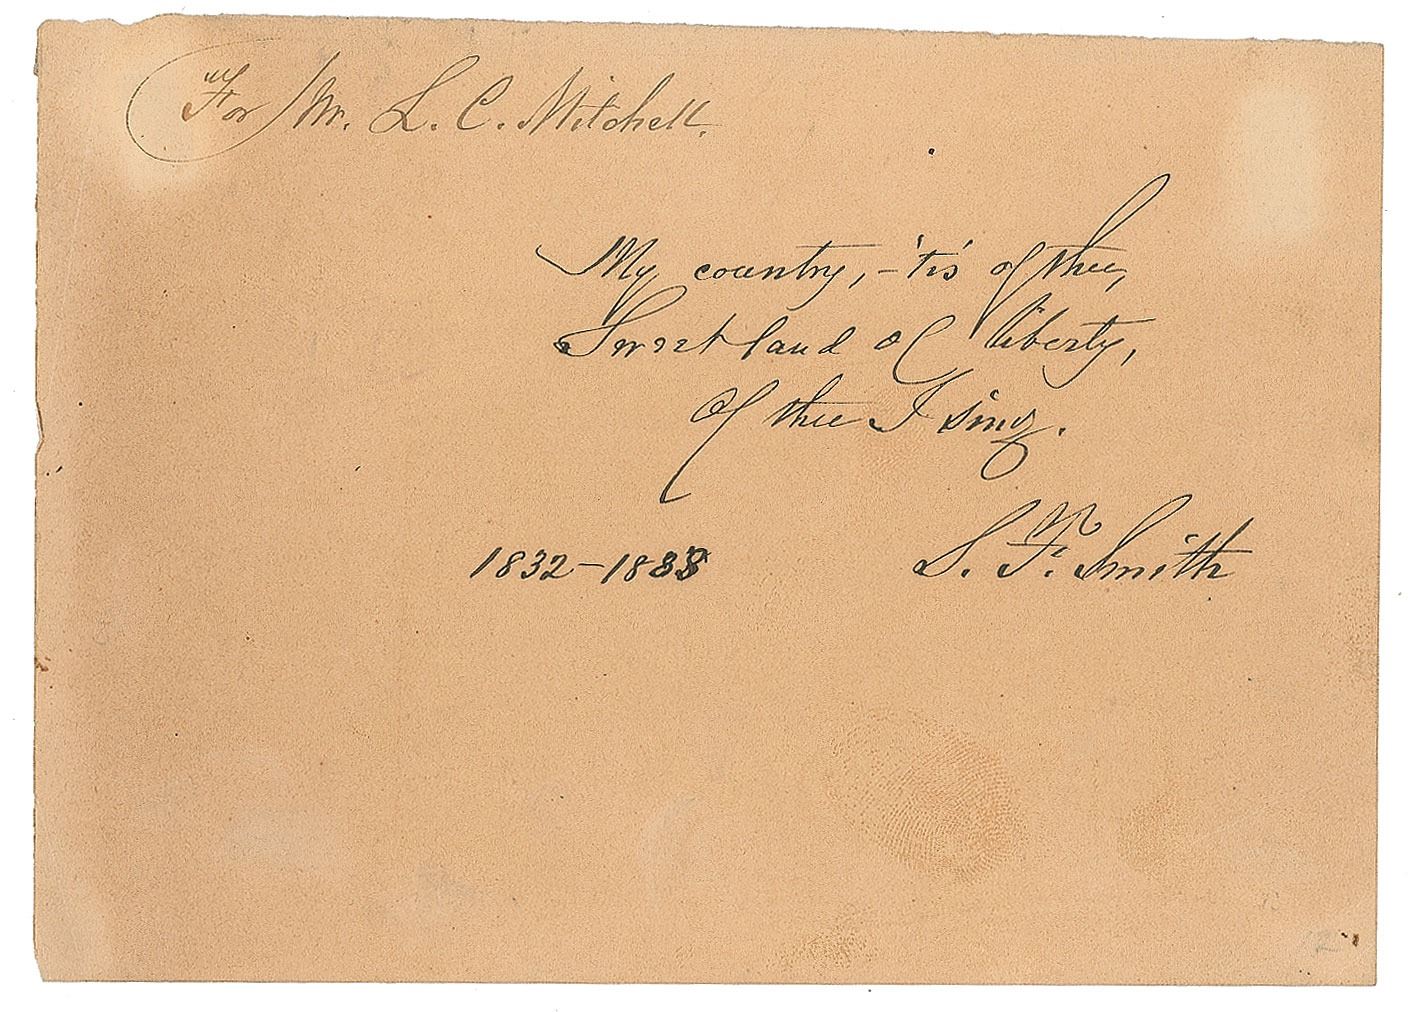 For Mr. L. C. Mitchell.
My country, - 'tis of thee,
Sweet land of liberty,
Of thee I sing.
1832-1888 S. F. Smith